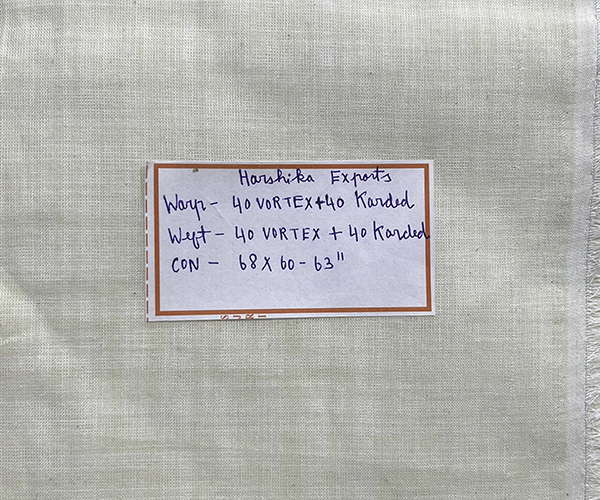 Harshika Exports
Warp - 40 VORTEX + 40 Karded
Weft - 40 VORTEX + 40 Karded
CON - 68 X 60 - 63"